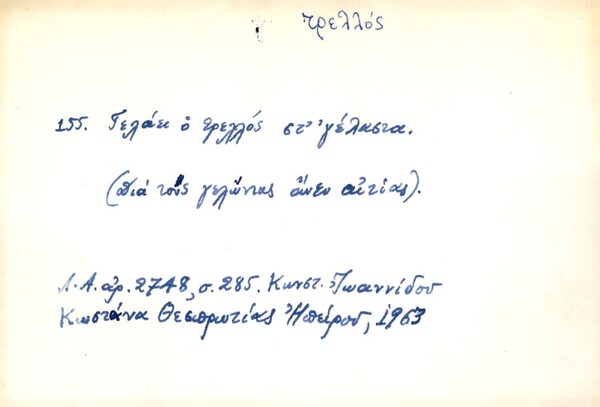 τρελλός
155. Γελάει ὁ τρελλός στ' ἀγέλαστα.
(Διά τούς γελῶντας ἄνευ αἰτίας).
Λ.Α. ἀρ. 2748, σ. 285. Κωνστ. Ἰωαννίδου
Κωστάνα Θεσπρωτίας Ἠπείρου, 1963